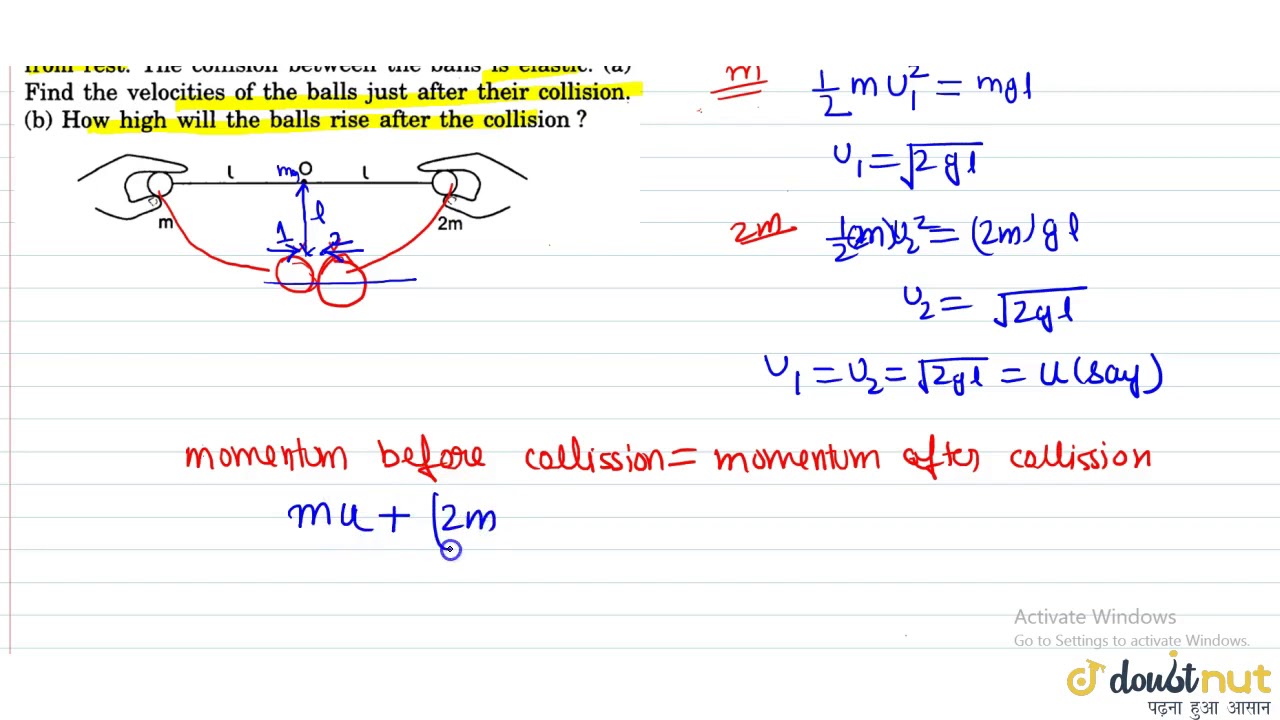 from rest. The collision between the balls is elastic. (a)
Find the velocities of the balls just after their collision.
(b) How high will the balls rise after the collision ?
l mg O l
m l 2m
1 2
m 1/2 m υ₁² = mgl
υ₁ = √2gl
2m 1/2 (2m) υ₂² = (2m) gl
υ₂ = √2gl
υ₁ = υ₂ = √2gl = u (say)
momentum before collission = momentum after collission
mu + (2m
Activate Windows
Go to Settings to activate Windows.
doubtnut
पढ़ना हुआ आसान